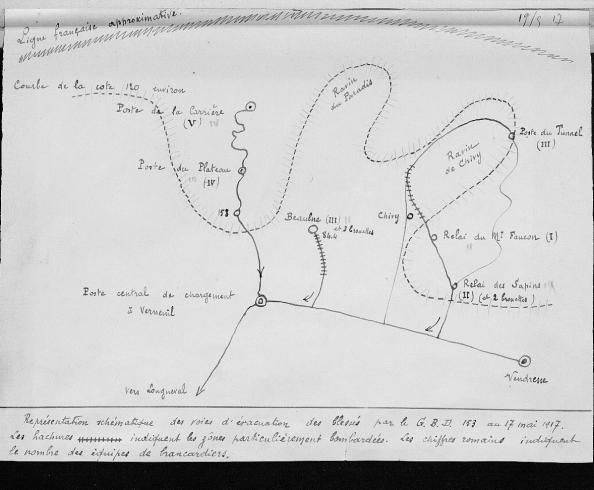 Ligne française approximative.
19/5 17
Courbe de la cote 120 environ
Ravin
du Paradis
Poste de la Carrière
(V)
Poste du Tunnel
(III)
Ravin
de Chivy
Poste du Plateau
(IV)
153
Beaulne (III)
et 3 brouettes
Chivy
Relai du Mt Faucon (I)
Relai des Sapins
(II) (et 2 brouettes)
Poste central de chargement
à Verneuil
Vendresse
vers Longueval
Représentation schématique des voies d'évacuation des blessés par le G.B.D. 153 au 17 mai 1917.
Les hachures indiquent les zônes particulièrement bombardées. Les chiffres romains indiquent
le nombre des équipes de brancardiers.